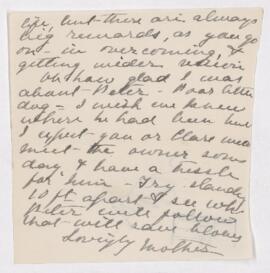 life, but there are always
big rewards, as you go
on, in overcoming, &
getting wider vision
Oh how glad I was
about Peter - Poor little
dog - I wish we knew
where he had been but
I expect you or Clare will
meet the owner some
day & have a tussle
for him - Try standing
10 ft apart & see who
Peter will follow
that will save blows
Lovingly Mother